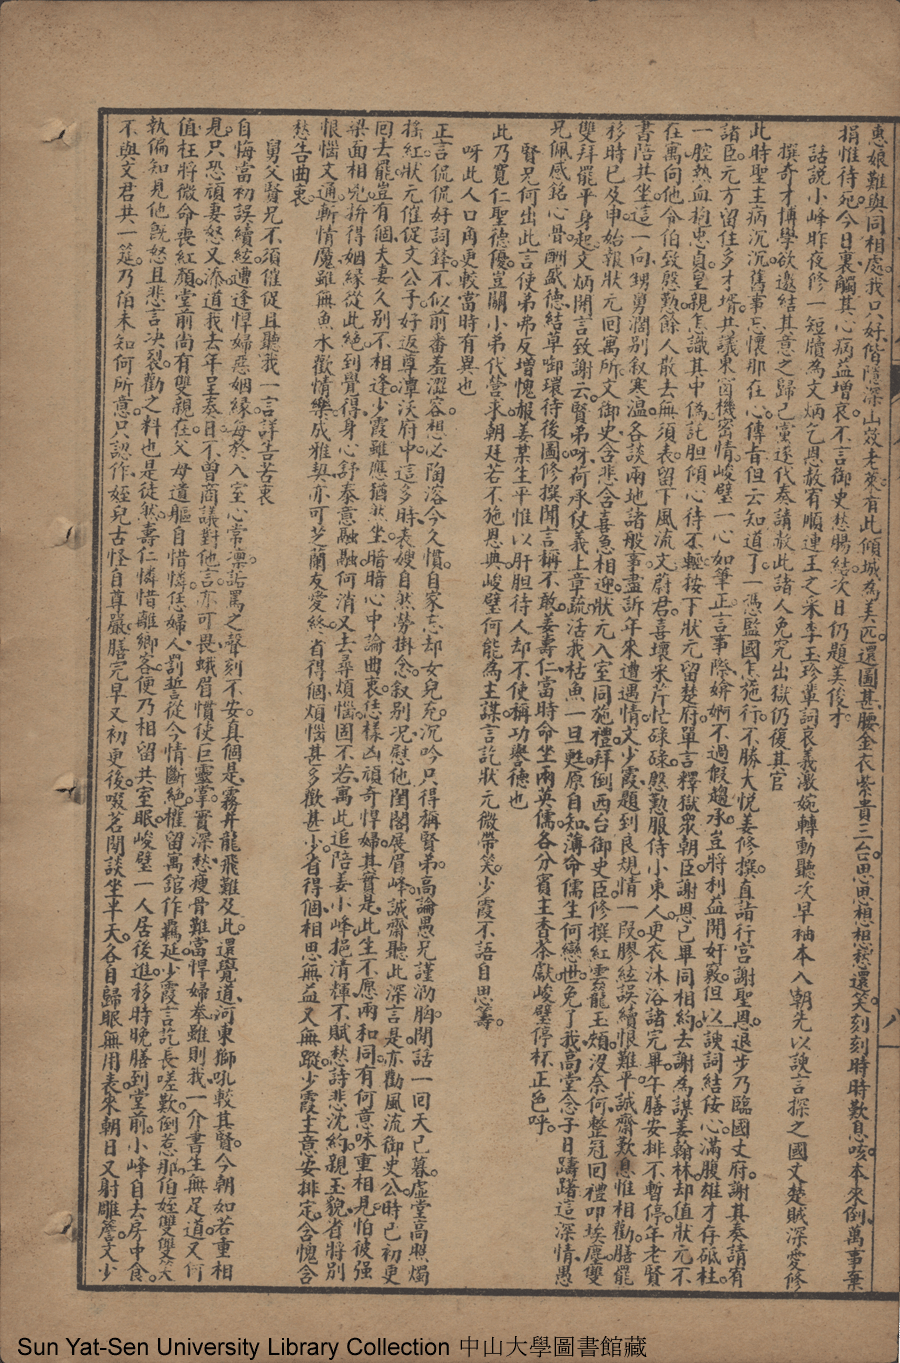 惠娘難與同相處我只好偕隱深山效老萊有此傾城為美匹還圖甚腰金衣紫貴三台思思想想愁還笑刻刻時時歎息咳本來倒萬事棄
捐惟待死今日裏觸其心病益增哀不言御史愁腸結次日仍題美俊才
話說小峰昨夜修一短牘為文炳乞恩赦宥順連王之宋李玉珍輩詞哀義激婉轉動聽次早袖本入朝先以諛言探之國丈楚賊深愛修
撰奇才博學欲邀結其意之歸己黨遂代奏請赦此諸人免究出獄仍復其官
此時聖主病沉沉舊事忘懷那在心傳旨但云知道了一憑監國怎施行不勝大悅姜修撰直詣行宮謝聖恩退步乃臨國丈府謝其奏請宥
諸臣元方留住多才壻共議東窗機密情峻壁一心如筆正言事際媕婀不過假趨承豈將利益開奸竅但以諛詞結佞心滿腹雄才存砥柱
一腔熱血抱忠貞皇親怎識其中偽託胆傾心待不輕按下狀元留楚府單言釋獄眾朝臣謝恩已畢同相約去謝為謀姜翰林却值狀元不
在寓向他令伯致殷勤餘人散去無須表留下風流文蔚君喜壞朱斤忙碌碌慇勤服侍小東人更衣沐浴諸完畢午膳安排不暫停年老賢
書陪共坐這一向甥舅濶別叙寒温各談兩地諸般事盡訴年來遭遇情文少霞題到良規情一段膠絃誤續恨難平誠齋歎息惟相勸膳罷
移時已及申始報狀元回寓所文御史含悲含喜急相迎狀元入室同施禮拜倒西台御史臣修撰紅雲龍玉頰沒奈何整冠回禮叩埃塵雙
雙拜罷平身起文炳開言致謝云賢弟呀荷承仗義上章疏活我枯魚一旦甦原自知薄命儒生何戀世免了我高堂念子日躊躇這深情愚
兄佩感銘心骨酬盛德結草啣環待後圖修撰聞言稱不敢姜壽仁當時命坐兩英儒各分賓主香茶獻峻壁停杯正色呼
賢兄何出此言使弟弗反增愧赧姜某生平惟以肝胆待人却不使稱功譽德也
此乃寬仁聖德優豈關小弟代營求朝廷若不施恩典峻壁何能為主謀言訖狀元微帶笑少霞不語自思籌
呀此人口角更較當時有異也
正言侃侃好詞鋒不似前番羞澀容想必陶溶今久慣自家忘却女兒充沉吟只得稱賢弟高論愚兄謹泐胸閒話一回天已暮虛堂高照燭
搖紅狀元催促文公子好返尊潭沃府中這多時表嫂自然勞掛念叙別况慰他閨閣展眉峰誠齋聽此深言是亦勸風流御史公時已初更
回去罷豈有個夫妻久別不相逢少霞雖應猶然坐暗暗心中論曲衷恁樣凶頑奇悍婦其實是此生不愿兩和同有何意味重相見怕被强
梁面相兇拚得姻緣從此絕到覺得身心舒泰意融融何消又去尋煩惱固不若寓此追陪姜小峰挹清輝不賦愁詩悲沈約親玉貌省將別
恨惱文通斬情魔雖無魚水歡情樂成雅契亦可芝蘭友愛終省得個煩惱甚多歡甚少省得個相思無益又無蹤少霞主意安排定含愧含
愁告曲衷
舅父賢兄不須催促且聽我一言詳告苦衷
自悔當初誤續絃遭逢悍婦惡姻緣每癸入室心常凛詬罵之聲刻不安真個是霧井龍飛難及此還覺道河東獅吼較其賢今朝如若重相
見只恐頑妻怒又添道我去年呈奏日不曾商議對他言亦可畏蛾眉慣使巨靈掌實深愁瘦骨難當悍婦拳雖則我一介書生無足道又何
值枉將微命喪紅顏堂前尚有雙親在父母遺軀自惜憐恁婦人罰誓從今情斷絕權留寓舘作羈延少霞言訖長嗟歎倒惹那伯姪雙雙笑
執偏知見他旣怒且悲言决裂勸之料也是徒然壽仁憐惜離鄉客便乃相留共室眠峻壁一人居後進移時晚膳到堂前小峰自去房中食
不與文君共一筵乃伯未知何所意只認作姪兒古怪自尊嚴膳完早又初更後啜茗閒談坐半天各自歸眠無用表來朝日又射雕簷文少
八
Sun Yat-Sen University Library Collection 中山大學圖書館藏